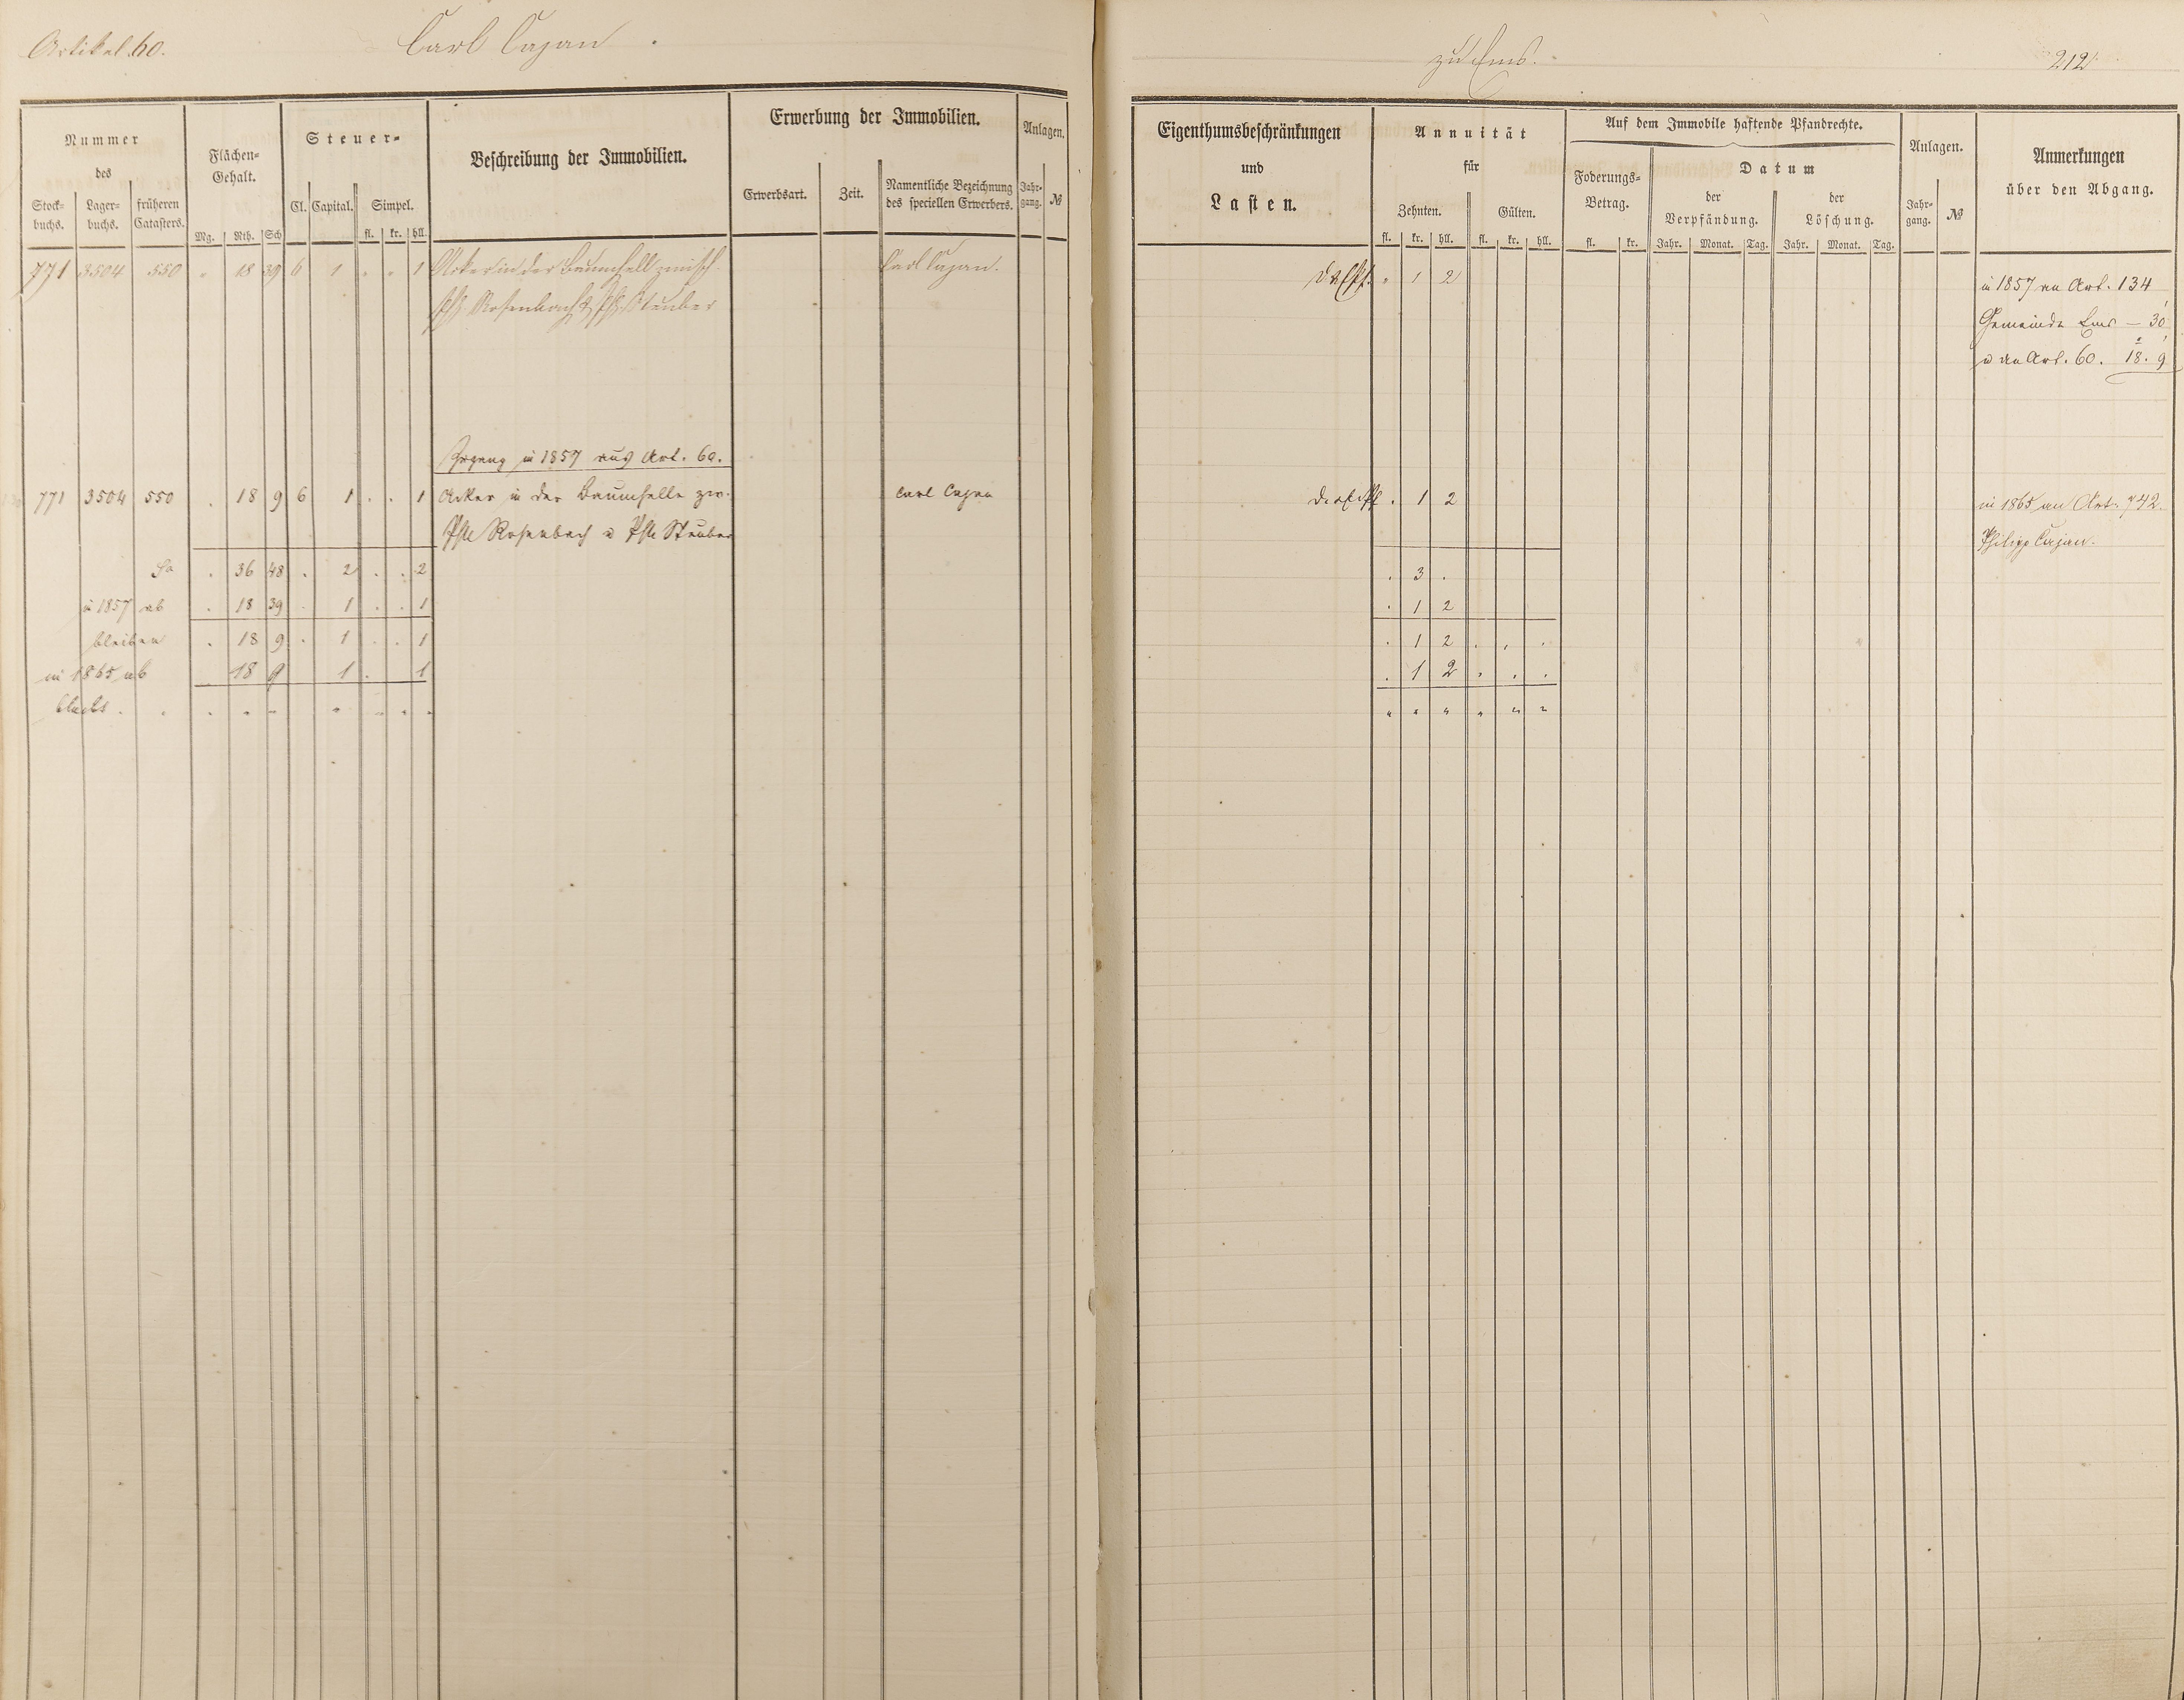 Artikel 60. Carl Cajan. zu Ems. 212
Nummer des
Stock-buchs. Lager-buchs. früheren Catasters.
Flächen-Gehalt.
Mg. Rth. Sch
Steuer-
Cl. Capital. Simpel.
fl. kr. hll.
Beschreibung der Immobilien.
Erwerbung der Immobilien.
Erwerbsart. Zeit. Namentliche Bezeichnung des speciellen Erwerbers.
Anlagen.
Jahr-gang. №
Eigenthumsbeschränkungen
und
Lasten.
Annuität
für
Zehnten. Gülten.
fl. kr. hll. fl. kr. hll.
Auf dem Immobile haftende Pfandrechte.
Foderungs-Betrag.
fl. kr.
Datum
der Verpfändung. der Löschung.
Jahr. Monat. Tag. Jahr. Monat. Tag.
Anlagen.
Jahr-gang. №
Anmerkungen
über den Abgang.
771 3504 550 . 18 39 6 1 . . 1 Acker in der Baumhell zwisch. Carl Cajan. . 1 2 in 1857 an Art. 134
Rosenbach Steuber Gemeinde Ems — 30
u an Art. 60. 18. 9
Zugang in 1857 aus Art. 60.
771 3504 550 . 18 9 6 1 . . 1 Acker in der Baumhelle zw. Carl Cajan . 1 2 in 1865 an Art. 742.
Phll Rosenbach u Phll Steuber Philipp Cajan.
Sa . 36 48 . 2 . . 2 . 3 .
in 1857 ab . 18 39 . 1 . . 1 . 1 2
bleiben . 18 9 . 1 . . 1 . 1 2 . . .
in 1865 ab 18 9 1 . 1 . 1 2 . . .
bleibt . . . . - " . . . " " " " " "